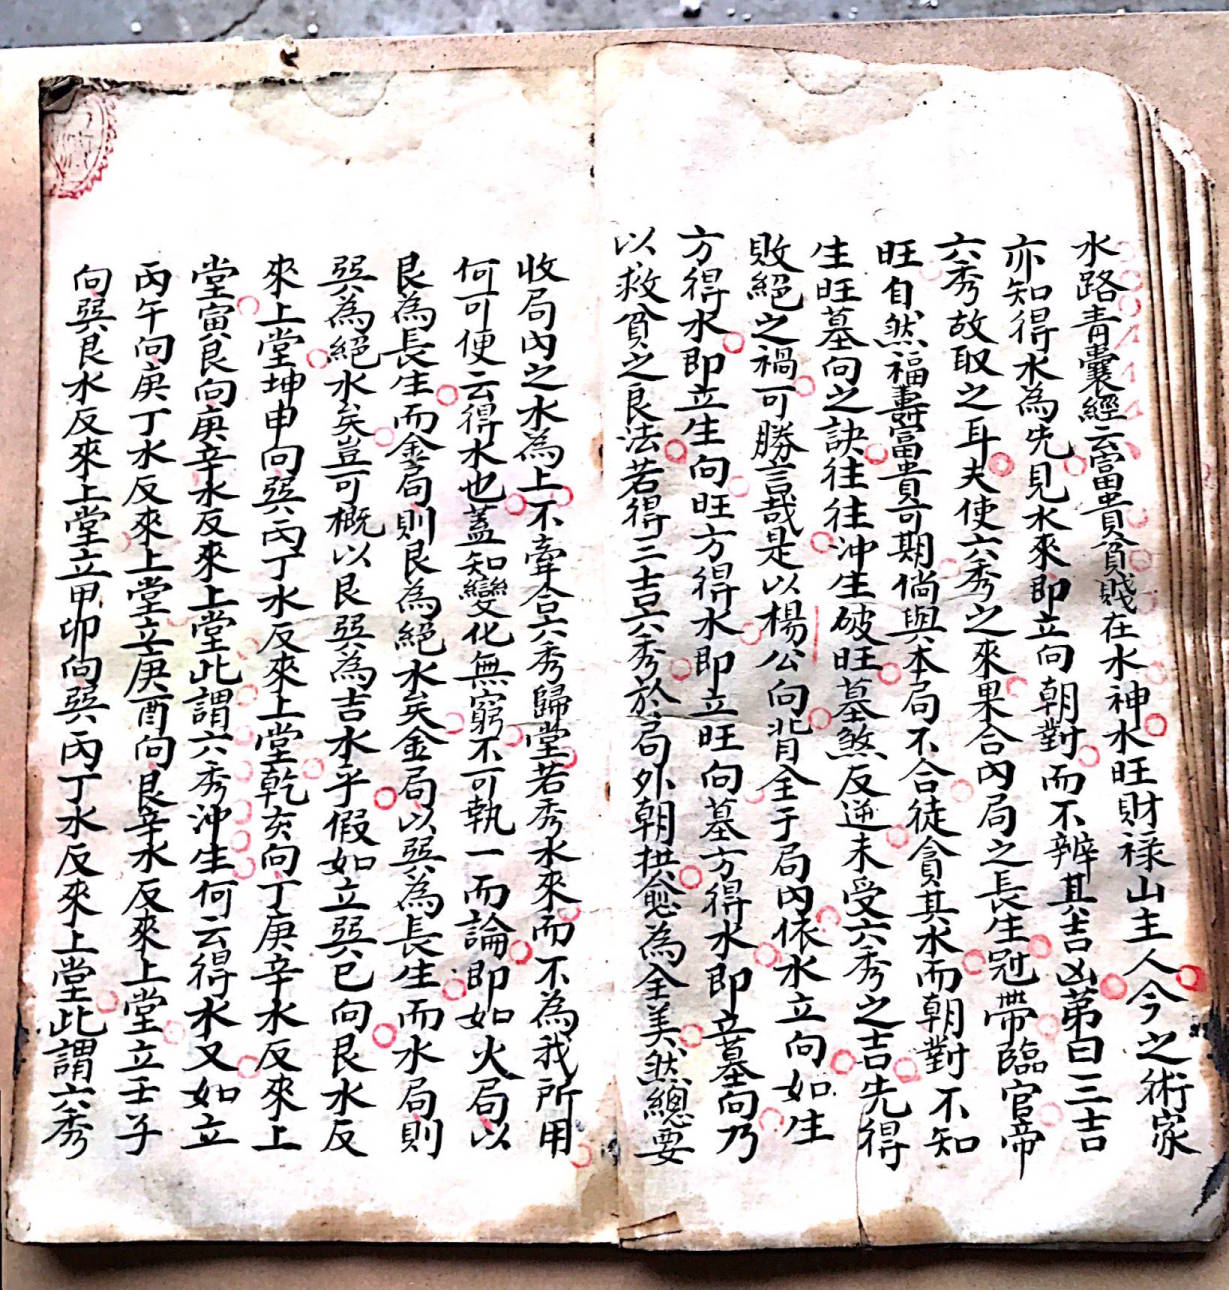 水路青囊經云富貴貧賤在水神水旺財禄山主人今之術家
亦知得水為先見水來即立向朝對而不辨其吉凶第曰三吉
六秀故取之耳夫使六秀之來果合內局之長生冠帶臨官帝
旺自然福壽富貴可期倘與本局不合徒貪其水而朝對不知
生旺墓向之訣往往沖生破旺墓煞反逆未受六秀之吉先得
敗絕之禍可勝言哉是以楊公向背全于局內依水立向如生
方得水即立生向旺方得水即立旺向墓方得水即立墓向乃
以救貧之良法若得三吉六秀於局外朝拱愈為全美然總要
收局內之水為上不牽合六秀歸堂若秀水來而不為我所用
何可便云得水也蓋知變化無窮不可執一而論即如火局以
艮為長生而金局則艮為絕水矣金局以巽為長生而水局則
巽為絕水矣豈可概以艮巽為吉水乎假如立巽巳向艮水反
來上堂坤申向巽丙丁水反來上堂乾亥向丁庚辛水反來上
堂寅艮向庚辛水反來上堂此謂六秀沖生何云得水又如立
丙午向庚丁水反來上堂立庚酉向艮辛水反來上堂立壬子
向巽艮水反來上堂立甲卯向巽丙丁水反來上堂此謂六秀